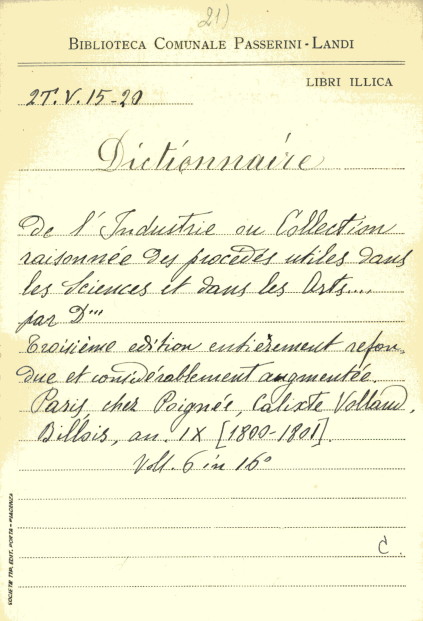 21)
BIBLIOTECA COMUNALE PASSERINI-LANDI
LIBRI ILLICA
2T.V.15-20
Dictionnaire
De l'Industrie ou Collection
raisonnée des procédés utiles dans
les Sciences et dans les Arts....
par D'''
Troisième edition entièrement refon-
due et considérablement augmentée.
Paris, chez Poignée, Calixte Volland,
Billois, an. IX [1800-1801].
Voll. 6 in 16°
C.
SOCIETÀ TIP. EDIT. PORTA - PIACENZA